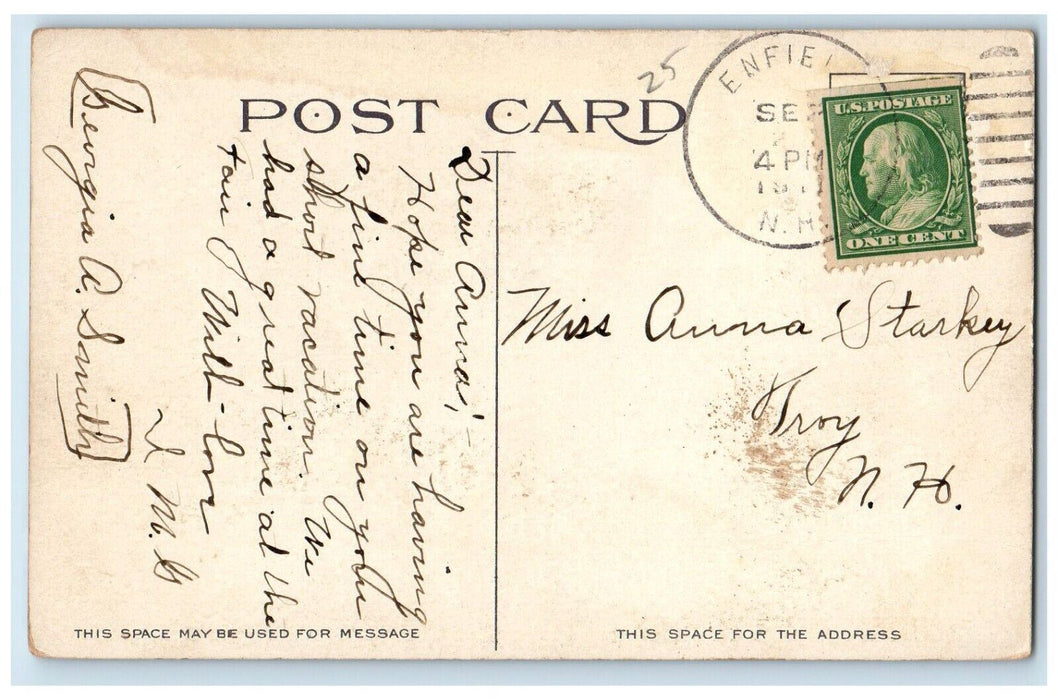 POST CARD
25
ENFIEL
SEP
4 PM
191
N.H.
U.S. POSTAGE
ONE CENT
Dear Anna;-
Hope you are having
a fine time on your
short vacation. We
had a great time at the
Fair. With-love
M. G
Georgia A. Smith
Miss Anna Starkey
Troy
N. H.
THIS SPACE MAY BE USED FOR MESSAGE
THIS SPACE FOR THE ADDRESS